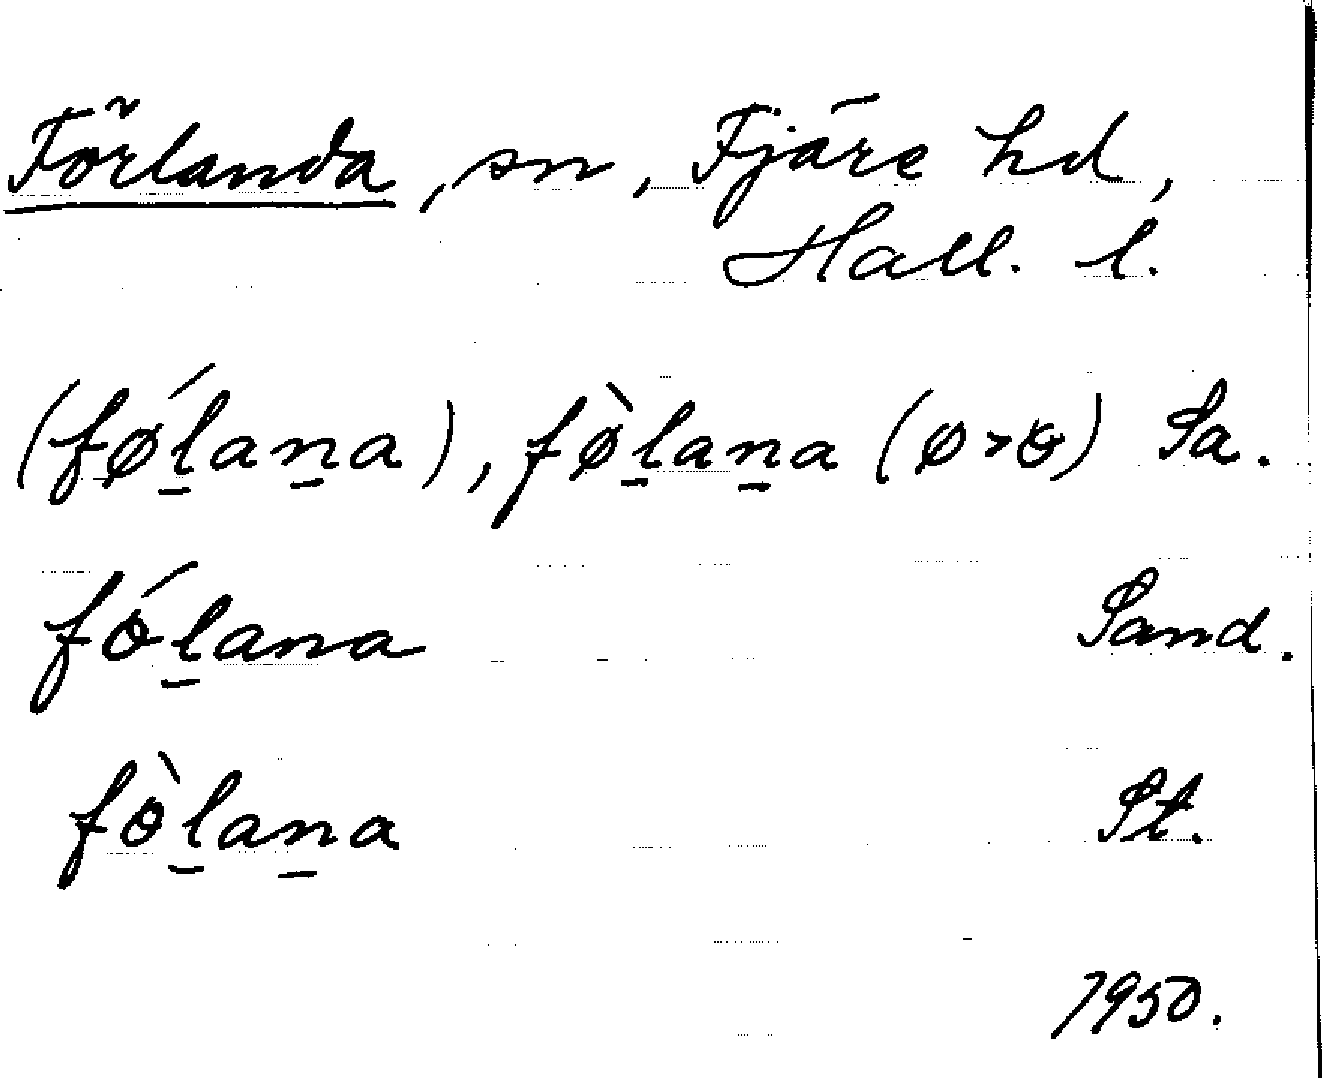 Förlanda, sn, Fjäre hd,
Hall. l.
(fǿl̲an̲a), fø̀l̲an̲a (ø>ɵ) Sa.
fɵ́l̲ana Sand.
fɵ̀l̲an̲a St.
1950.